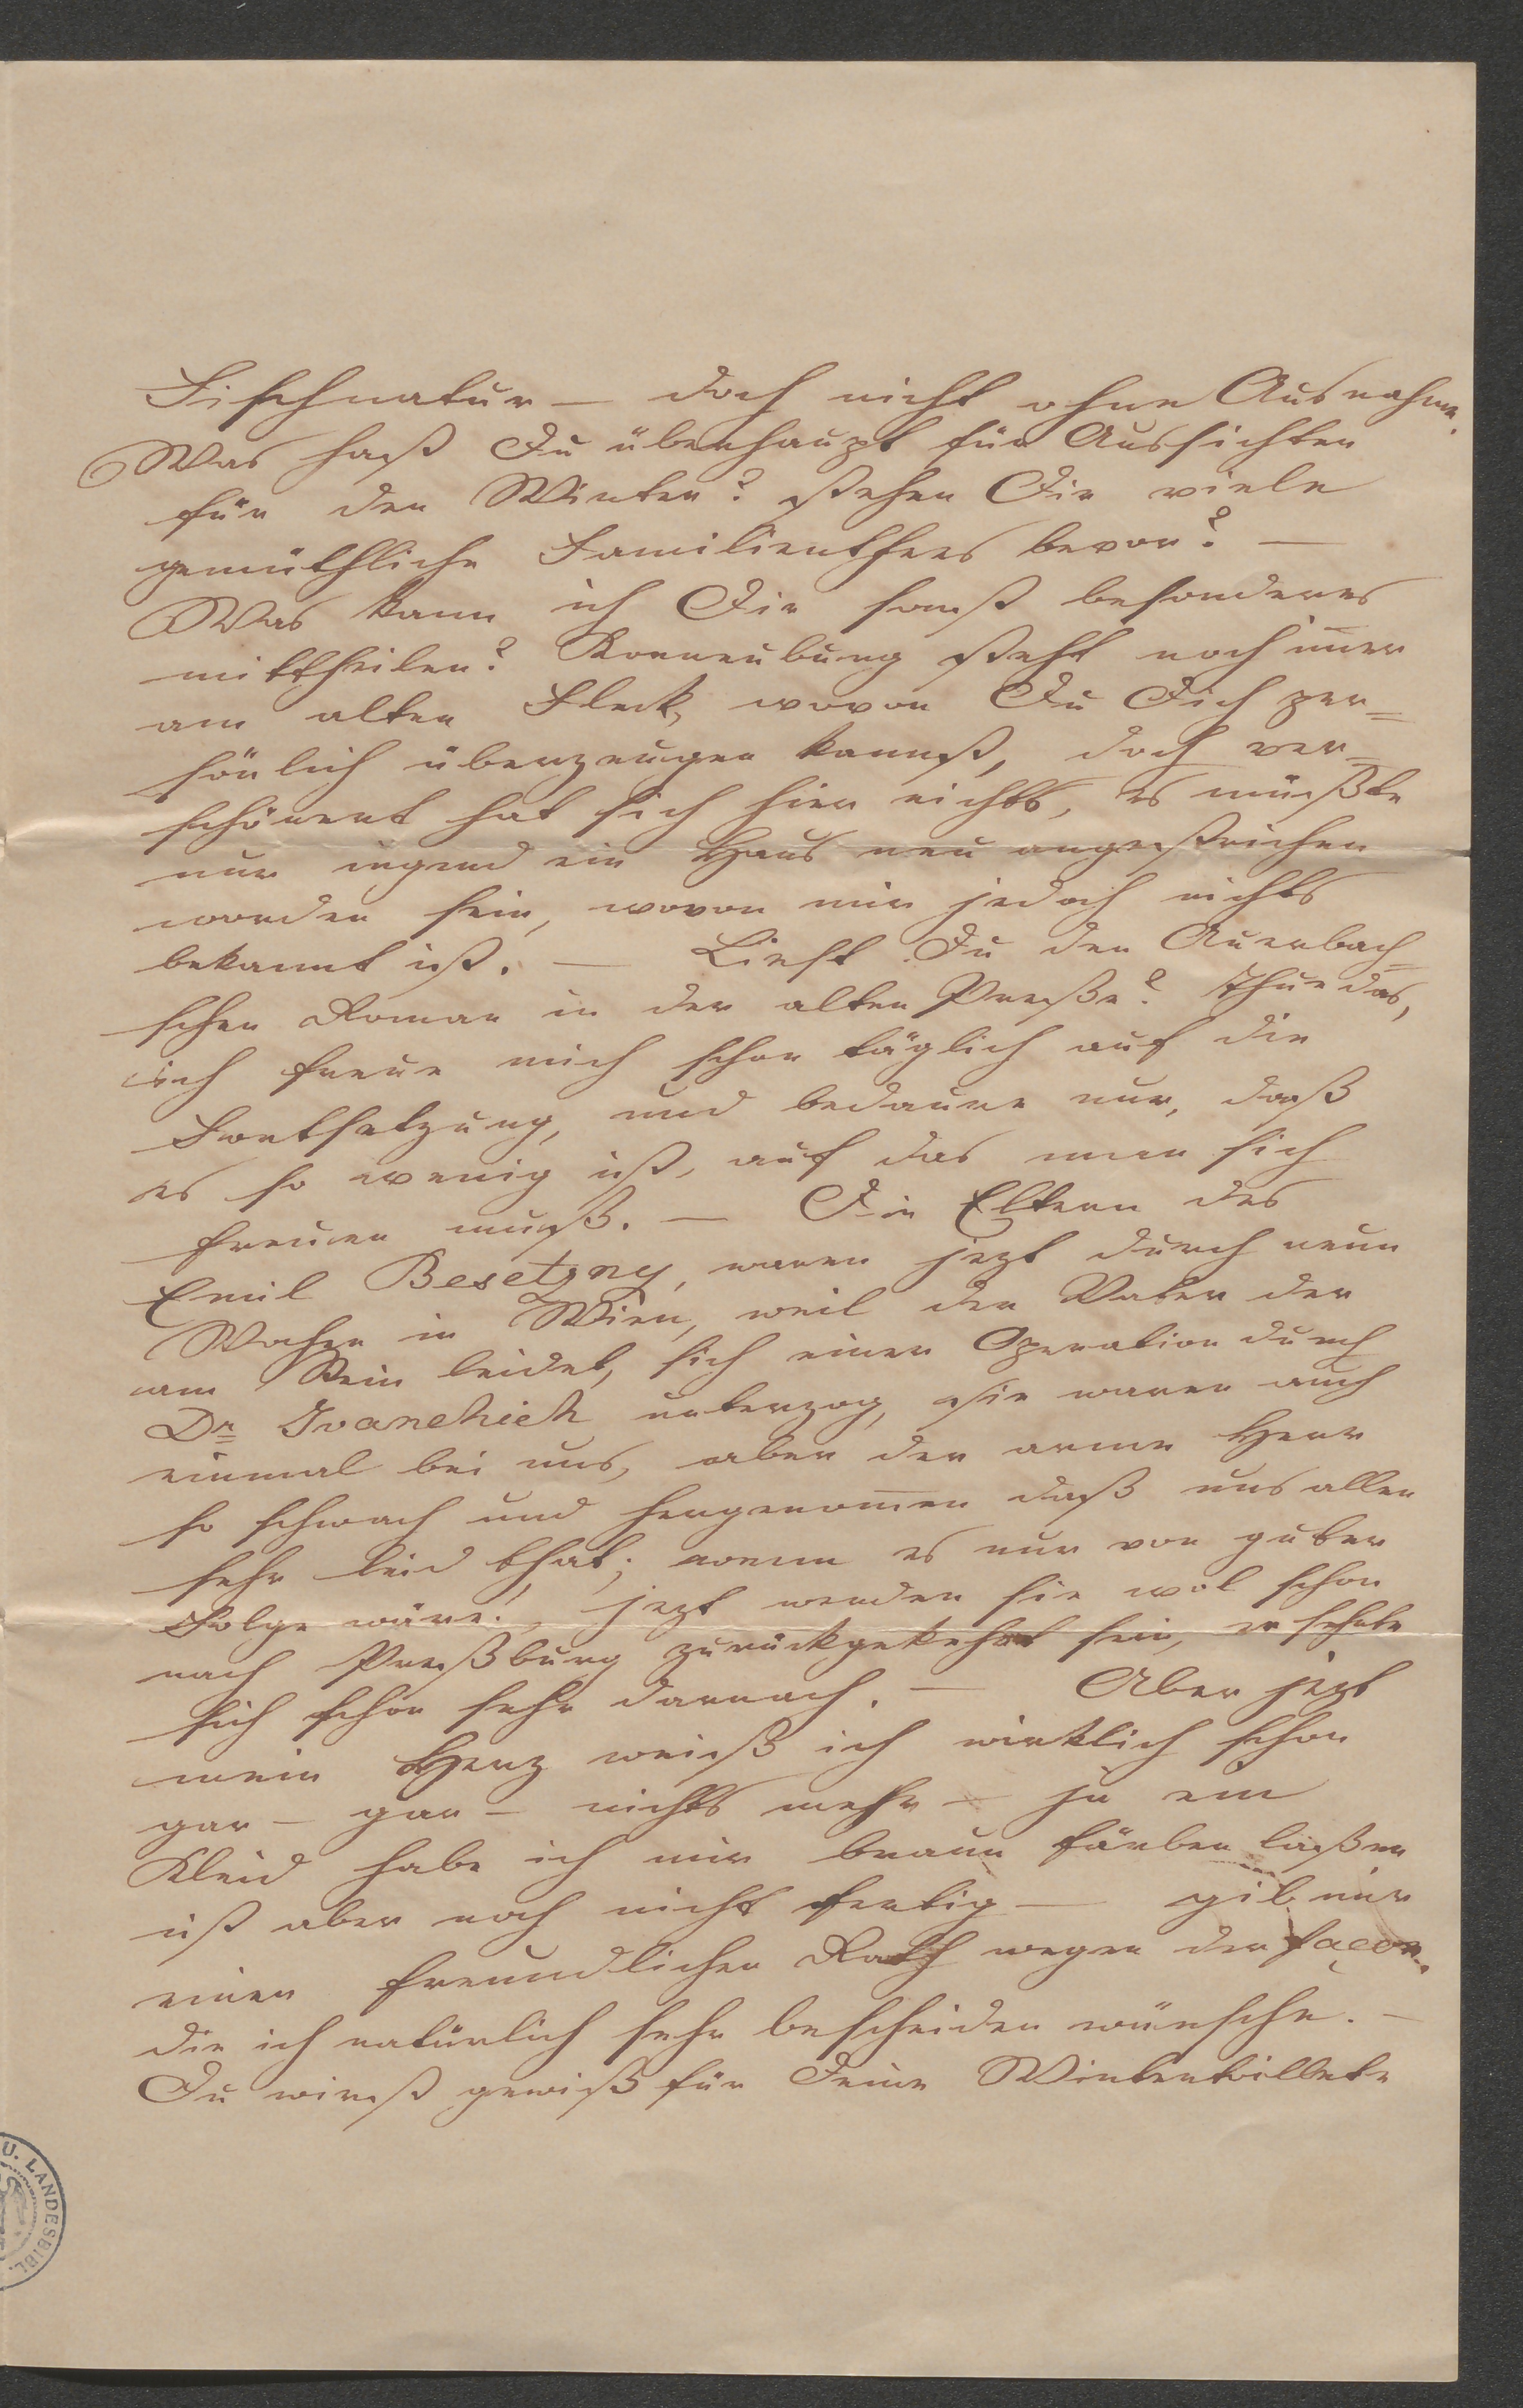 Fischnatur — doch nicht ohne Ausnahme.
Was hast Du überhaupt für Aussichten
für den Winter? stehen Dir viele
gemüthliche Familienthees bevor? —
Was kann ich Dir sonst besonderes
mittheilen? Korneuburg steht noch im̅er
am alten Fleck, wovon Du Dich per=
sönlich überzeugen kannst, doch ver=
schönert hat sich hier nichts, es müßte
nur irgend ein Haus neu angestrichen
worden sein, wovon mir jedoch nichts
bekannt ist. — Liest Du den Auerbach=
schen Roman in der alten Presse? Thue das,
ich freue mich schon täglich auf die
Fortsetzung, und bedaure nur, daß
es so wenig ist, auf das man sich
freuen muß. — Die Eltern des
Emil Besetzny, waren jezt durch neun
Wochen in Wien, weil der Vater der
am Stein leidet, sich einer Operation durch
Dr. Ivanchich unterzog, sie waren auch
einmal bei uns, aber der arme Herr
so schwach und hergenom̅en daß uns allen
sehr leid that; wenn es nur von guter
Folge wäre!, jezt werden sie wol schon
nach Preßburg zurückgekehrt sein, er sehnte
sich schon sehr darnach. — Aber jezt
mein Herz weiß ich wirklich schon
gar — gar — nichts mehr — ja ein
Kleid habe ich mir braun färben laßen
ist aber noch nicht fertig — gib mir
einen freundlichen Rath wegen der façon.
die ich natürlich sehr bescheiden wünsche. —
Du wirst gewiß für Deine Wintertoillete
U. LANDESBIBL.